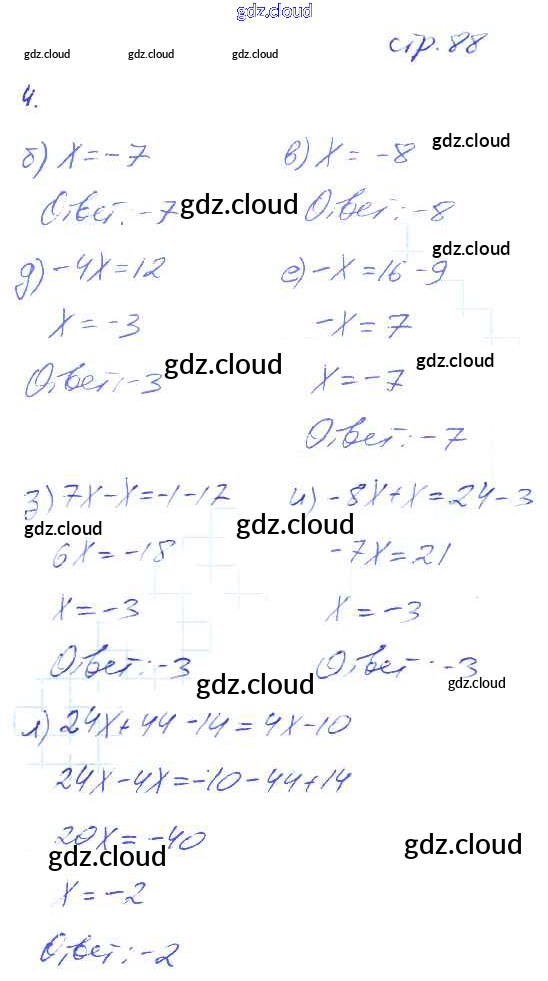 gdz.cloud
gdz.cloud gdz.cloud gdz.cloud стр. 88
4.
б) x = -7 в) x = -8 gdz.cloud
Ответ: -7 gdz.cloud Ответ: -8
д) -4x = 12 е) -x = 16 - 9 gdz.cloud
x = -3 -x = 7
gdz.cloud gdz.cloud
Ответ: -3 x = -7
Ответ: -7
з) 7x - x = -1 - 17 и) -8x + x = 24 - 3
gdz.cloud gdz.cloud
6x = -18 -7x = 21
x = -3 x = -3
Ответ: -3 Ответ: -3
gdz.cloud gdz.cloud
л) 24x + 44 - 14 = 4x - 10
24x - 4x = -10 - 44 + 14
20x = -40
gdz.cloud gdz.cloud
x = -2
Ответ: -2